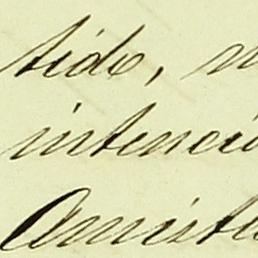 tido, n
intenció
Amista